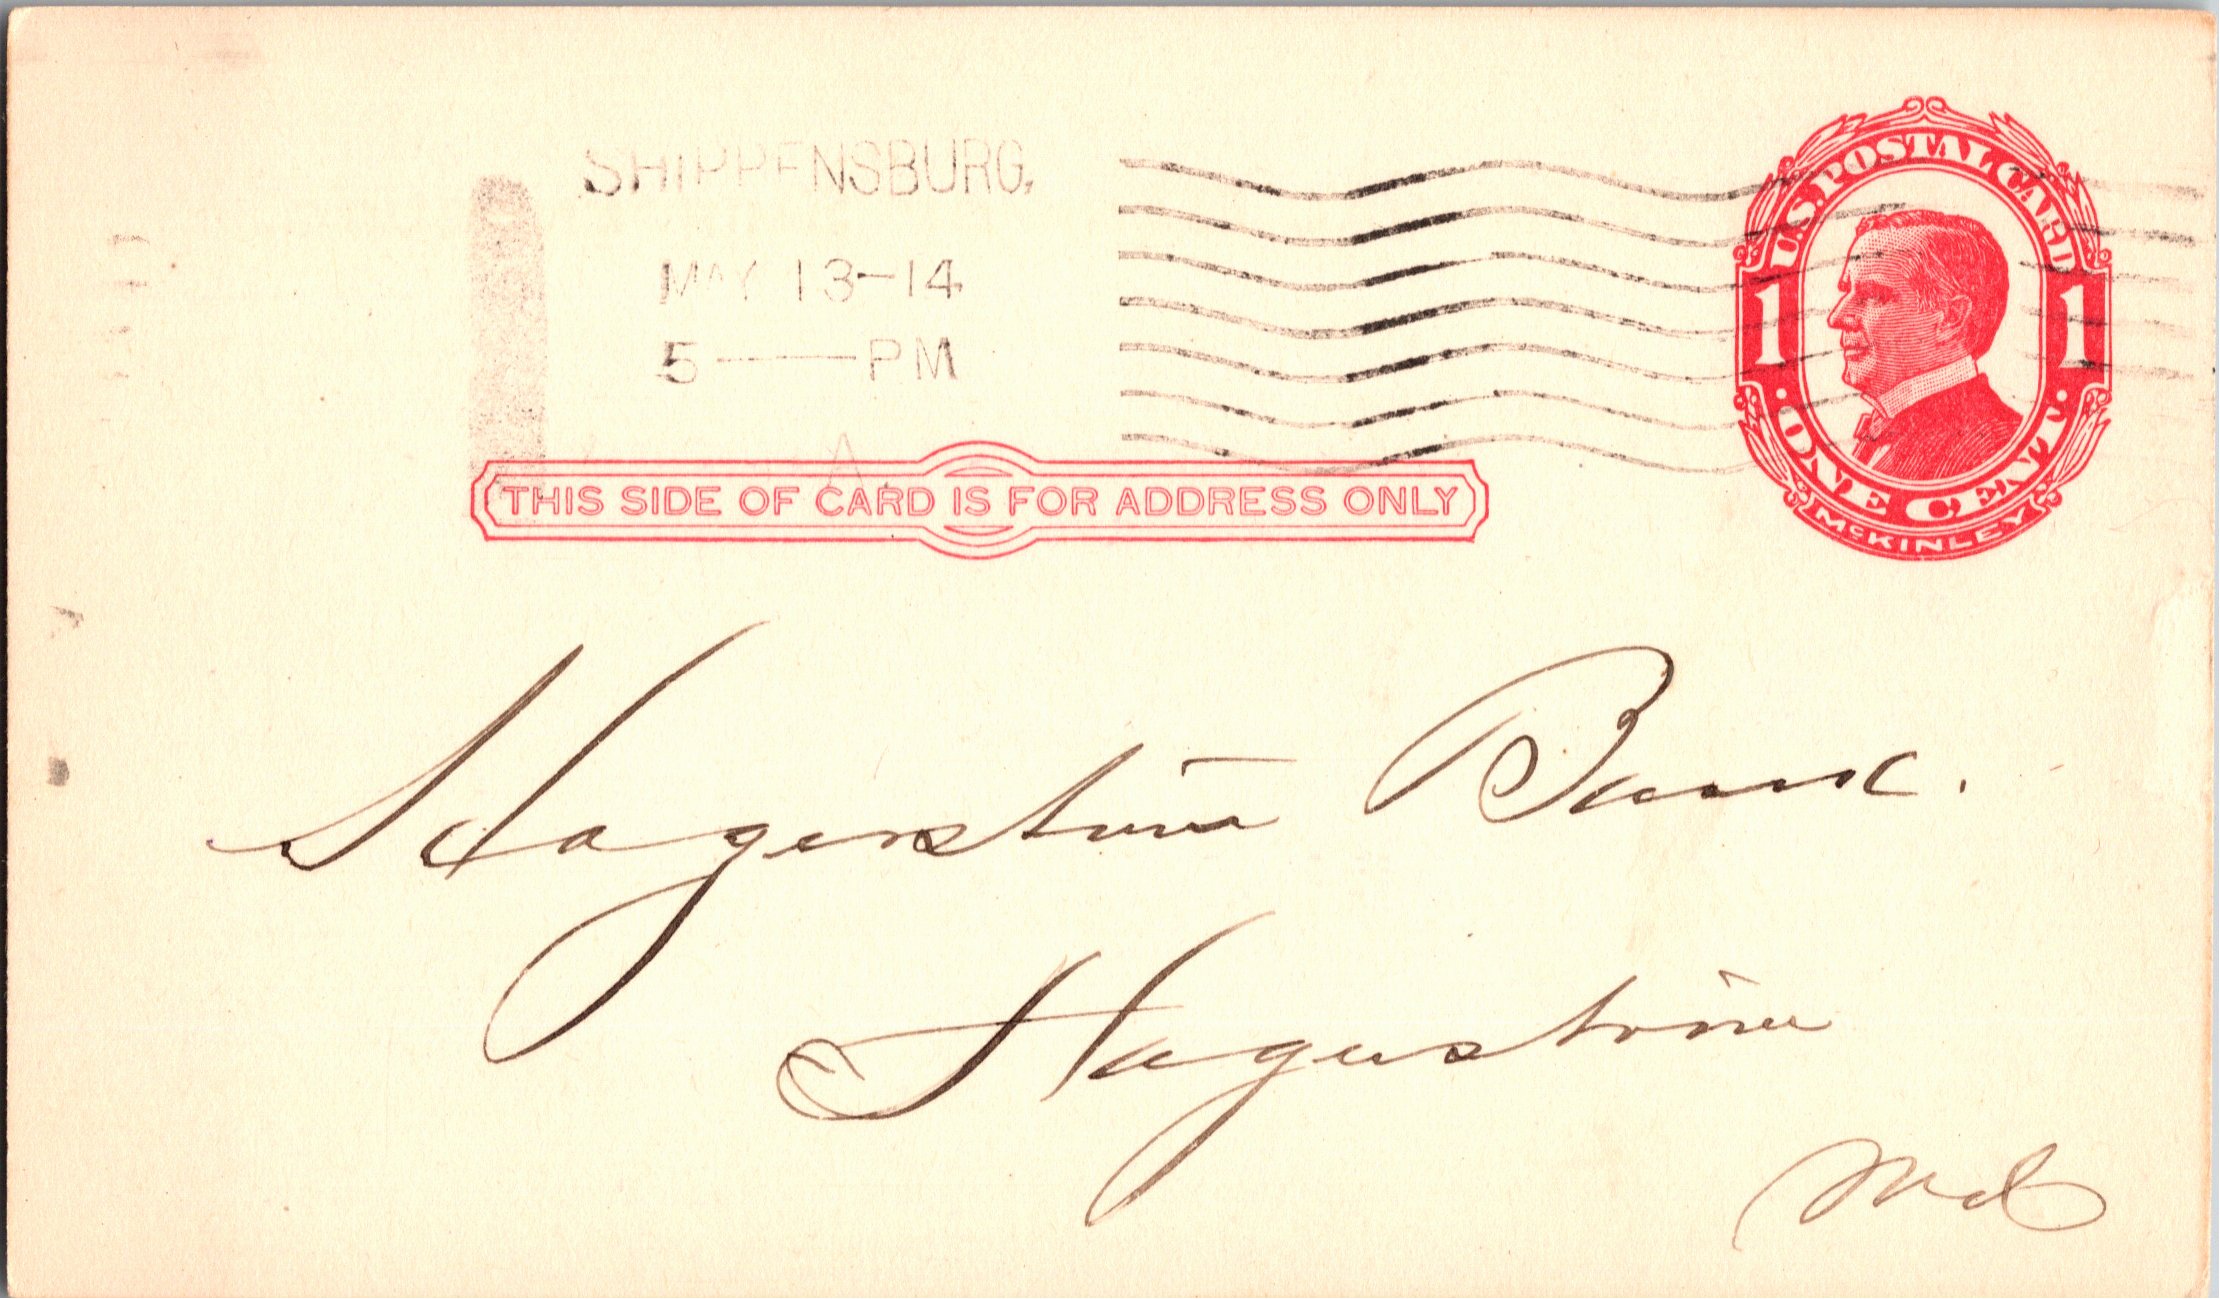 SHIPPENSBURG,
MAY 13-14
5 PM
U.S. POSTAL CARD
1 1
· ONE CENT ·
McKINLEY
THIS SIDE OF CARD IS FOR ADDRESS ONLY
Hagerstown Bank.
Hagerstown
Md